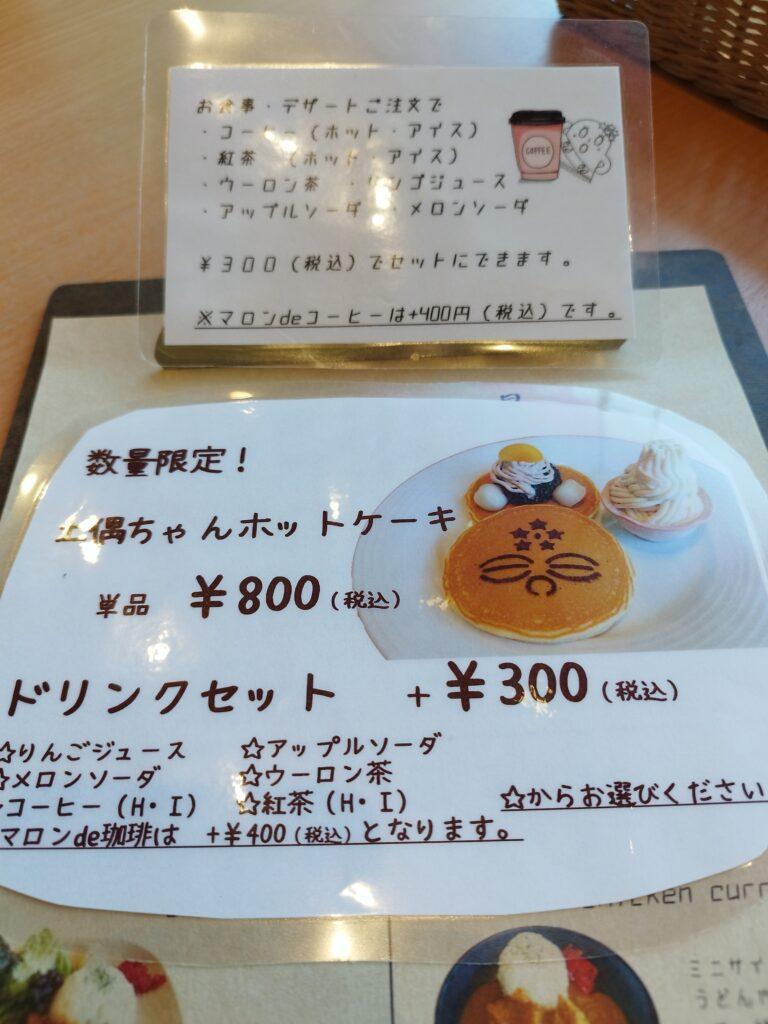 お食事・デザートご注文で
・コーヒー（ホット・アイス）
・紅茶　（ホット・アイス）
・ウーロン茶　・リンゴジュース
・アップルソーダ　・メロンソーダ
COFFEE
￥300（税込）でセットにできます。
※マロンdeコーヒーは+400円（税込）です。
数量限定！
土偶ちゃんホットケーキ
単品　￥800（税込）
ドリンクセット　+￥300（税込）
☆りんごジュース　☆アップルソーダ
☆メロンソーダ　☆ウーロン茶
コーヒー（H・I）　☆紅茶（H・I）　☆からお選びください
マロンde珈琲は　+￥400（税込）となります。
chicken curr
ミニサイ
うどんや